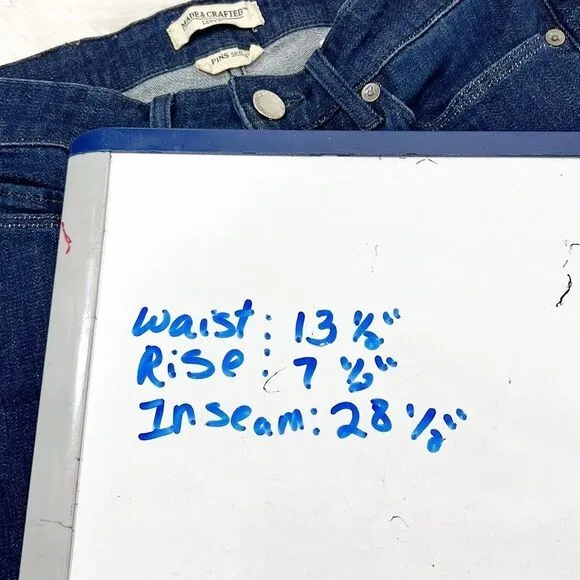 MADE & CRAFTED™
LEVI'S
PINS SKINNY
Waist: 13 ½"
Rise: 7 ½"
Inseam: 28 ½"